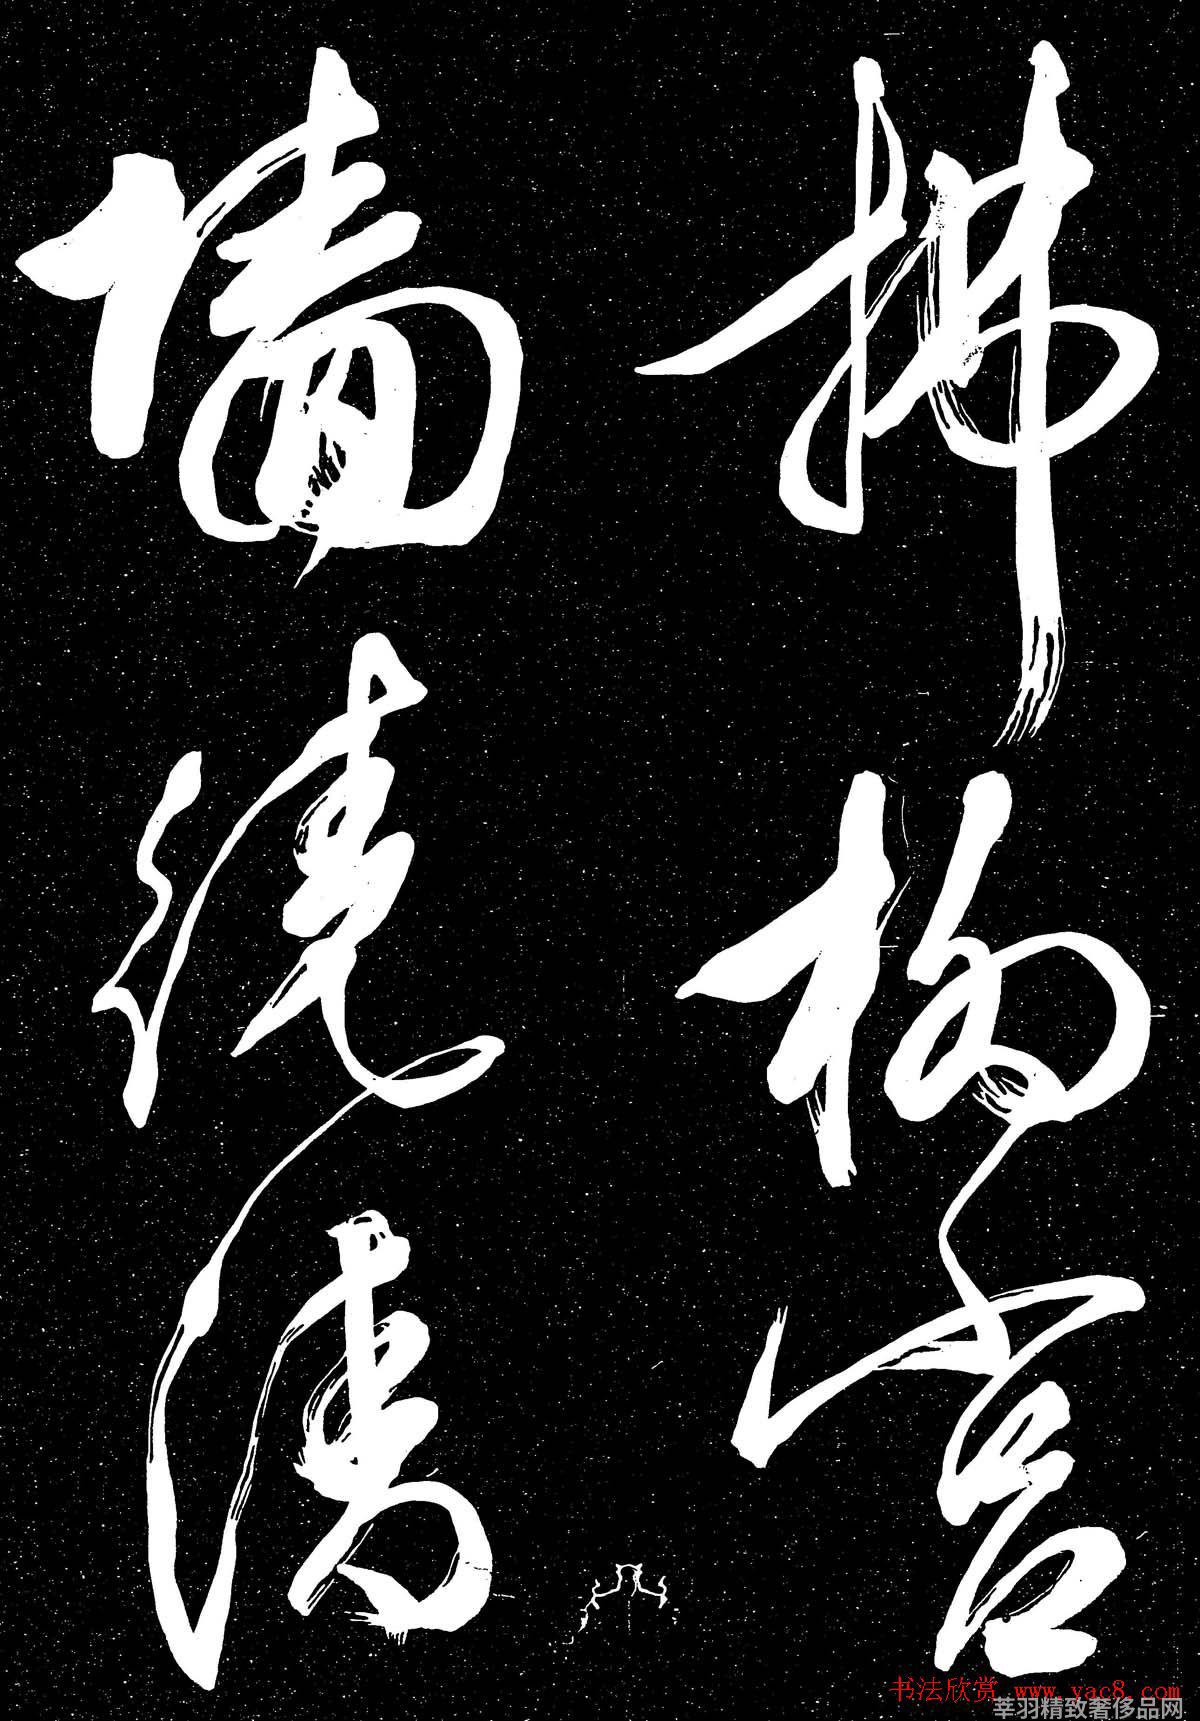 拂柳宫
墙绕清
书法欣赏 www.yac8.com
莘羽精致奢侈品网